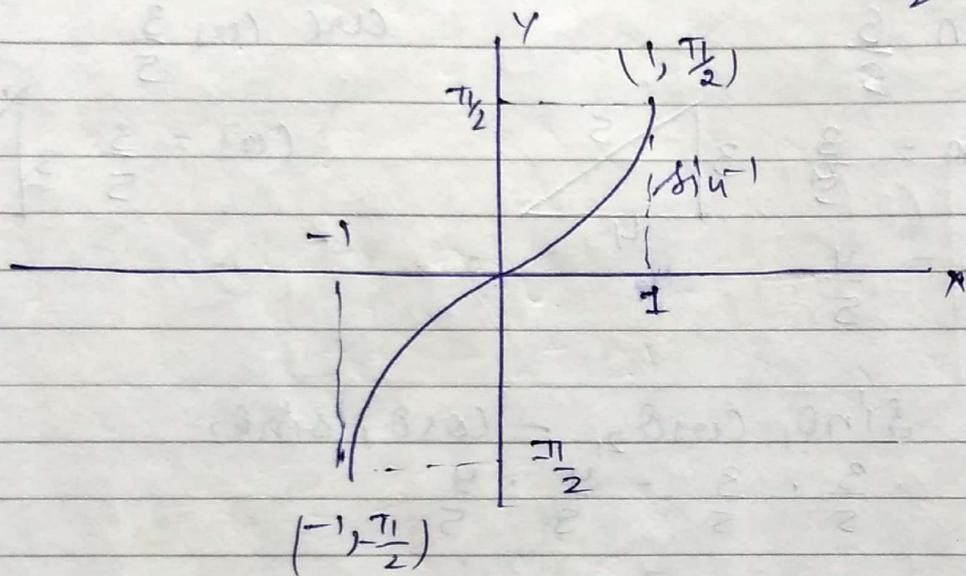 Y
(1, π/2)
π/2
sin⁻¹
-1
1
x
π/2
(-1, -π/2)